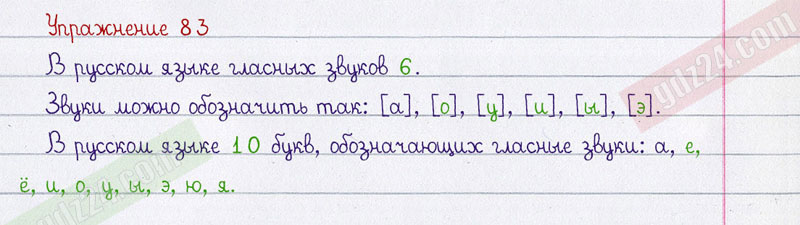 Упражнение 83
В русском языке гласных звуков 6.
Звуки можно обозначить так: [а], [о], [у], [и], [ы], [э].
В русском языке 10 букв, обозначающих гласные звуки: а, е,
ё, и, о, у, ы, э, ю, я.
ydz24.com
ydz24.com